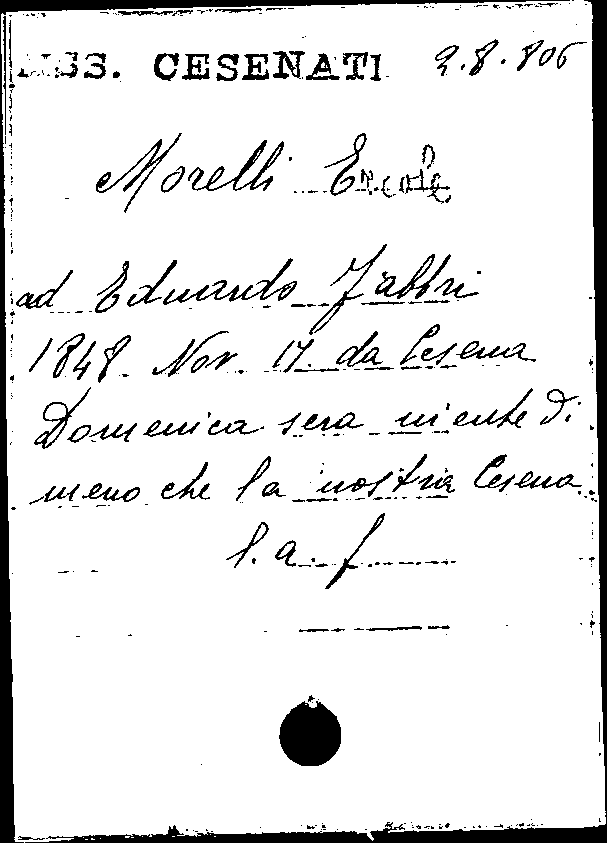 MSS. CESENATI 2.8.806
Morelli Ercole
ad Eduardo Fabbri
1848. Nov. 17. da Cesena
Domenica sera niente di
meno che la nostra Cesena
l. a. f.